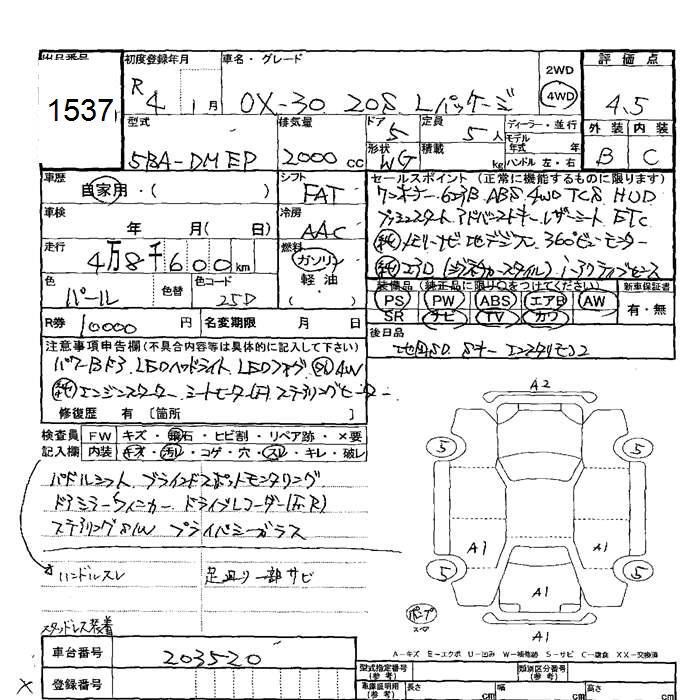 出品番号 初度登録年月 車名・グレード 2WD 4WD 評価点
1537 R 4 1月 CX-30 20S Lパッケージ 4.5
型式 排気量 ドア 5 定員 5人 ディーラー・並行 外装 内装
5BA-DMEP 2000 cc 形状 WG 積載 kg モデル年式 年 ハンドル 左・右 B C
車歴 自家用・( ) シフト FAT
セールスポイント (正常に機能するものに限ります)
ワンオーナー 6エアB ABS 4WD TCS HUD
車検 年 月( 日) 冷房 AAC
プッシュスタート アドバンストキー レザーシート ETC
走行 4万8千600km 燃料 ガソリン 軽油 ( )
純 メモリーナビ 地デジ 360°ビューモニター
色 パール 色替 色コード 25D
装備品 (純正品に限り○をつけてください) 新車保証書
PS PW ABS エアB AW 有・無
SR ナビ TV カワ
R券 10000 円 名変期限 月 日
後日品
注意事項申告欄(不具合内容等は具体的に記入して下さい)
パワーBドア LEDヘッドライト LEDフォグ 純 AW
純 エンジンスターター シートヒーター(F) ステアリングヒーター
修復歴 有 〔箇所 〕
検査員 FW キズ・飛石・ヒビ割・リペア跡・×要
記入欄 内装 キズ・汚れ・コゲ・穴・スレ・キレ・破レ
パドルシフト ブラインドスポットモニタリング
ドアミラーウィンカー ドライブレコーダー(F.R)
ステアリングS/W プライバシーガラス
ハンドルスレ 足回り一部サビ
スタッドレス装着
A2
5 5
A1 A1
5 5
A1
A1
A-キズ E-エクボ U-凹み W-補修跡 S-サビ C-腐食 XX-交換済
車台番号 203520
型式指定番号 (参考) 類別区分番号 (参考)
× 登録番号
車庫証明用 (参考) 長さ cm 幅 cm 高さ cm